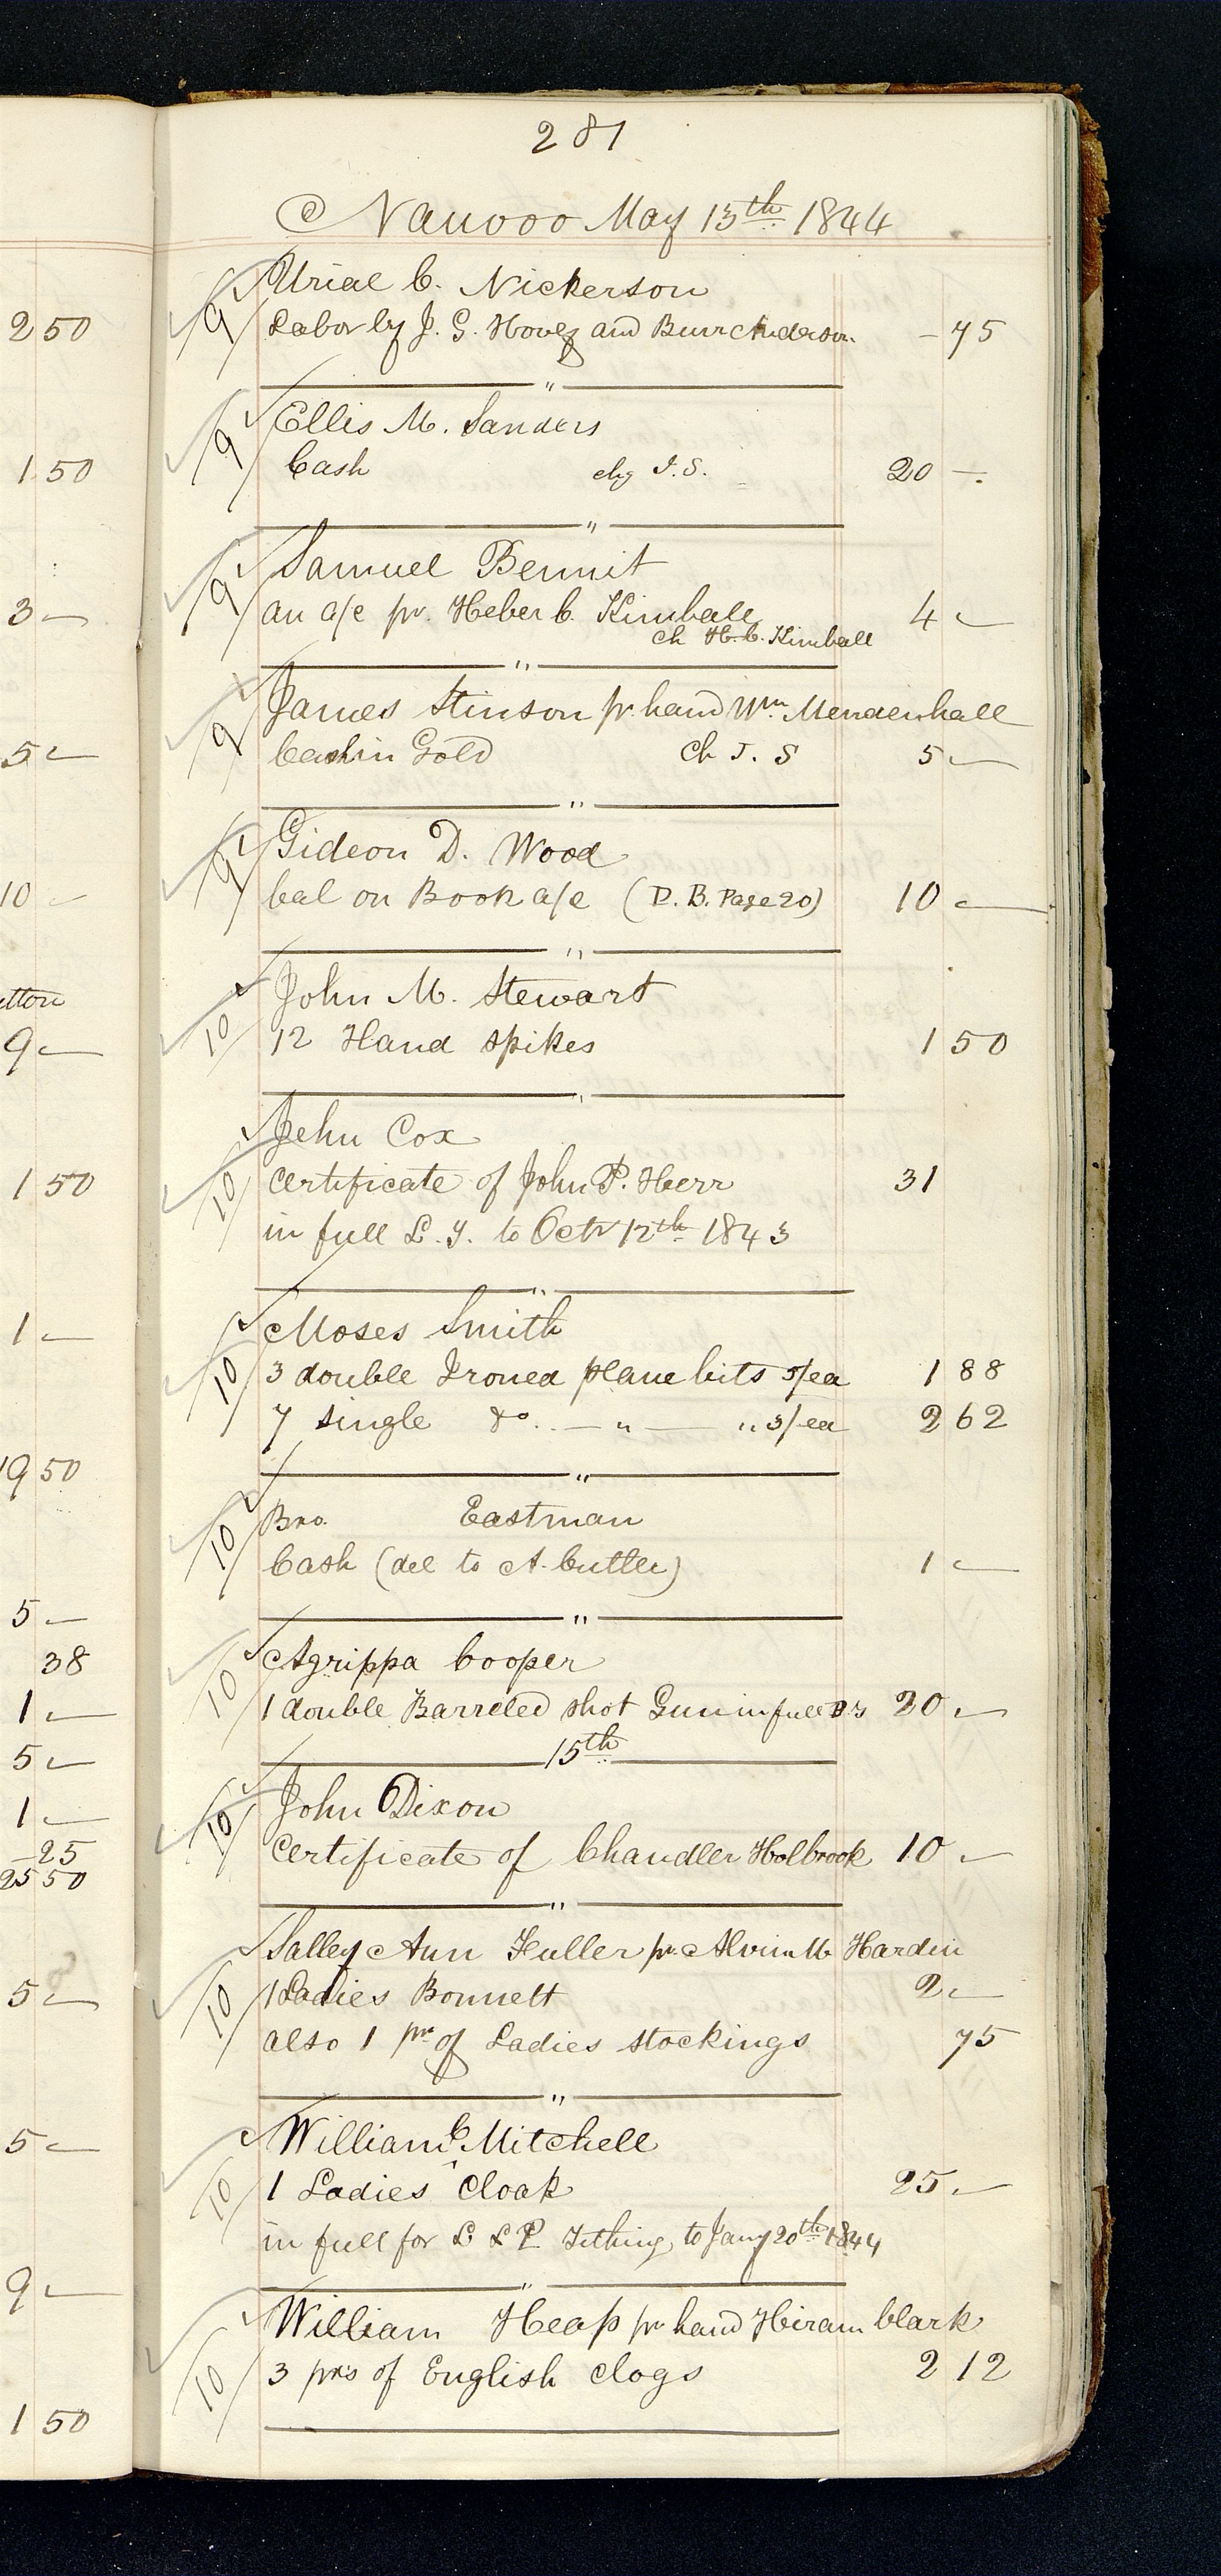 281
Nauvoo May 13th 1844
9 Uriel C. Nickerson
Labor by J. G. Hovey and Burr Anderson - 75
"
9 Ellis M. Sanders
Cash chg T.S. 20 -
"
9 Samuel Bennit
an a/c pr. Heber C. Kimball 4 -
Ch H. C. Kimball
"
9 James Stinson pr. hand Wm. Mendenhall
Cash in Gold Ch T. S 5 -
"
9 Gideon D. Wood
bal on Book a/c (D. B. Page 20) 10 -
"
10 John M. Stewart
12 Hand spikes 1 50
"
10 Jehu Cox
Certificate of John P. Herr 31
in full L. Y. to Octr 12th 1843
"
10 Moses Smith
3 double Ironed plane bits 5/ea 1 88
7 single do. — " — " 3/ea 2 62
"
10 Bro. Eastman
Cash (del to A. Cutler) 1 -
"
10 Agrippa Cooper
1 double Barreled shot Gun in full 20 -
15th
10 John Dixon
Certificate of Chandler Holbrook 10 -
"
10 Salley Ann Fuller pr. Alvin M Hardin
1 Ladies Bonnett 2 -
also 1 pr of Ladies stockings 75
"
10 William C Mitchell
1 Ladies Cloak 25 -
in full for L & P Tithing to Jany 20th 1844
"
10 William Heap pr hand Hiram Clark
3 prs of English Clogs 2 12
2 50
1 50
3 -
5 -
10 -
9 -
1 50
1 -
19 50
5 -
38
1 -
5 -
1 -
- 25
25 50
5 -
5 -
9 -
1 50